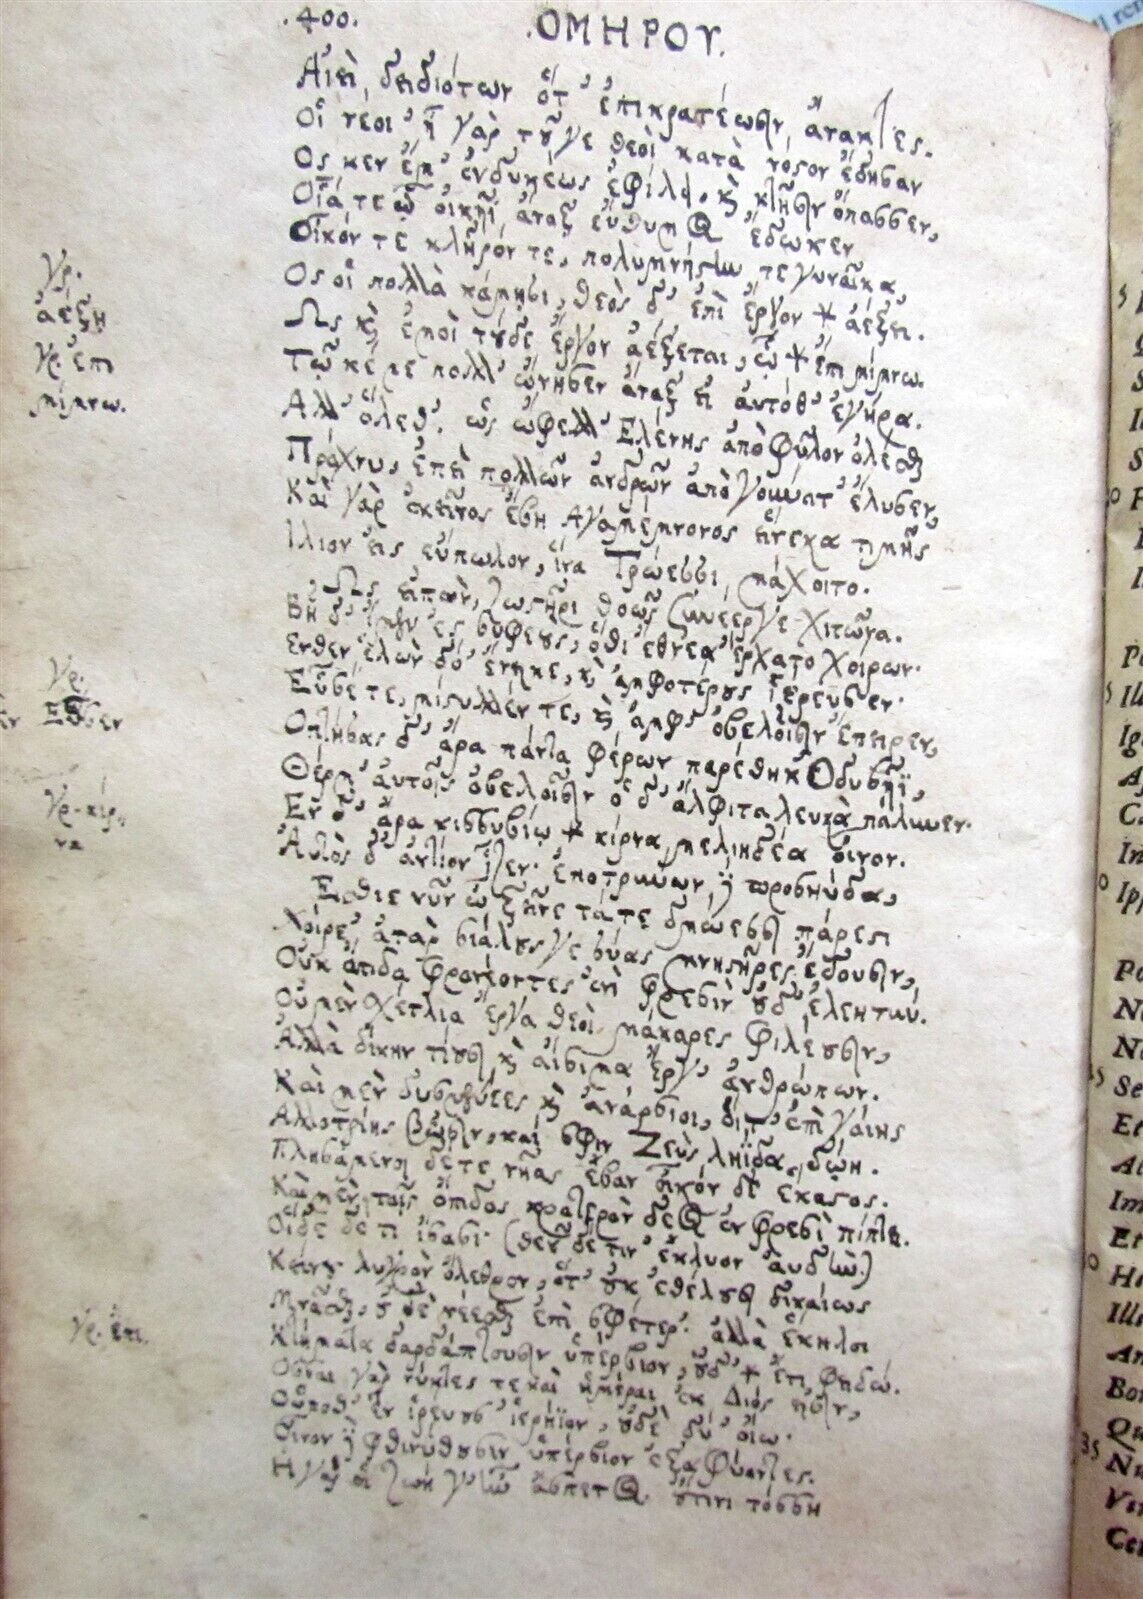 .400.
.ΟΜΗΡΟΥ.
Αἰεὶ, δειδιότων ὅτ' ἐπικρατέωσιν, ἄνακτες.
Οἱ νέοι· ἦ γὰρ τοῦγε θεοὶ κατὰ νόστον ἔδησαν
Ος κεν ἔμ' ἐνδυκέως ἐφίλει, καὶ κτῆσιν ὄπασσεν,
Οἷά τε ᾧ οἰκῆϊ ἄναξ εὔθυμος ἔδωκεν
Οἶκόν τε κλῆρόν τε, πολυμνήστην τε γυναῖκα,
Ος οἱ πολλὰ κάμησι, θεὸς δ' ἐπὶ ἔργον * ἀέξει.
Ως καὶ ἐμοὶ τόδε ἔργον ἀέξεται, ᾧ * ἐπιμίμνω.
Τῷ κέ με πολλ' ὤνησεν ἄναξ εἰ αὐτόθ' ἐγήρα.
Αλλ' ὄλεθ'. ὡς ὤφελλ' Ελένης ἀπὸ φῦλον ὀλέσθαι
Πρόχνυ, ἐπεὶ πολλῶν ἀνδρῶν ὑπὸ γούνατ' ἔλυσεν,
Καὶ γὰρ ἐκεῖνος ἔβη Αγαμέμνονος εἵνεκα τιμῆς
Ιλιον εἰς εὔπωλον, ἵνα Τρώεσσι μάχοιτο.
Ως εἰπὼν, ζωστῆρι θοῶς συνέεργε χιτῶνα.
Βῆ δ' ἴμεν ἐς συφεοὺς, ὅθι ἔθνεα ἔρχατο χοίρων·
Ενθεν ἑλὼν δύ' ἔνεικε, καὶ ἀμφοτέρους ἱέρευσεν·
Εὗσέ τε, μίστυλλέν τε, καὶ ἀμφ' ὀβελοῖσιν ἔπειρεν,
Οπτήσας δ' ἄρα πάντα φέρων παρέθηκ' Οδυσῆϊ,
Θέρμ' αὐτοῖς ὀβελοῖσιν ὁ δ' ἄλφιτα λευκὰ πάλυνεν·
Εν δ' ἄρα κισσυβίῳ * κίρνα, μελιηδέα οἶνον.
Αὐτὸς δ' ἀντίον ἷζεν· ἐποτρύνων δὲ προσηύδα,
Εσθιε νῦν ὦ ξεῖνε τά τε δμώεσσι πάρεστι
Χοίρε', ἀτὰρ σιάλους γε σύας μνηστῆρες ἔδουσιν,
Οὐκ ὄπιδα φρονέοντες ἐνὶ φρεσὶν οὐδ' ἐλεητύν.
Οὐ μὲν σχέτλια ἔργα θεοὶ μάκαρες φιλέουσιν,
Αλλὰ δίκην τίουσι καὶ αἴσιμα ἔργ' ἀνθρώπων.
Καὶ μὲν δυσμενέες καὶ ἀνάρσιοι, οἵτ' ἐπὶ γαίης
Αλλοτρίης βῶσιν, καί σφιν Ζεὺς ληΐδα δώῃ.
Πλησάμενοι δέ τε νῆας ἔβαν οἶκόν δε ἕκαστος.
Καὶ μὲν τοῖς ὄπιδος κρατερὸν δέος ἐν φρεσὶ πίπτει.
Οἵδε δέ τι ἴσασι· (θεοῦ δέ τιν' ἔκλυον αὐδὴν.)
Κείνου λυγρὸν ὄλεθρον, ὅτ' οὐκ ἐθέλουσι δικαίως
Μνᾶσθαι, οὐδὲ νέεσθαι ἐπὶ σφέτερ'. ἀλλὰ ἕκηλοι
Κτήματα δαρδάπτουσιν ὑπέρβιον, οὐδ' * ἔτι φειδώ.
Οσσαι γὰρ νύκτες τε καὶ ἡμέραι ἐκ Διός εἰσιν,
Οὔποθ' ἓν ἱρεύουσ' ἱερήϊον, οὐδὲ δύ' οἴω·
Οἶνον δὲ φθινύθουσιν ὑπέρβιον ἐξαφύοντες.
Η γάρ οἱ ζωή γ' ἦν ἄσπετος. οὔτινι τόσση
γρ.
ἀέξῃ
γρ. ἐπι
μίμνω.
γρ.
γρ. κίρ
να
γρ. ἐπι.